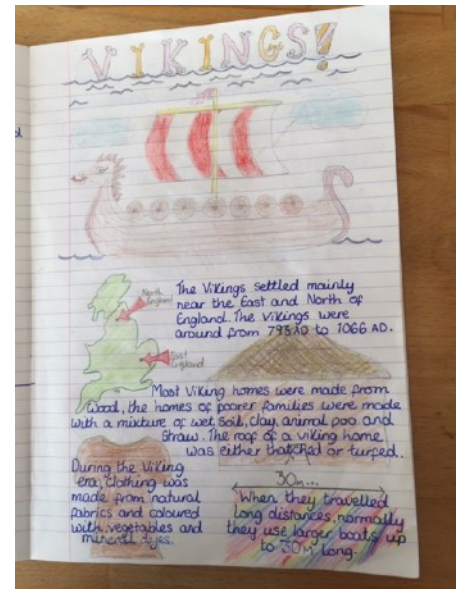 VIKINGS!
North
England
The Vikings settled mainly
near the East and North of
England. The Vikings were
around from 793 AD to 1066 AD.
East
England
Most Viking homes were made from
wood, the homes of poorer families were made
with a mixture of wet soil, clay, animal poo and
straw. The roof of a viking home
was either thatched or turfed.
During the Viking
era, clothing was
made from natural
fabrics and coloured
with vegetables and
mineral dyes.
30m...
When they travelled
long distances, normally
they use larger boats up
to 30m long.